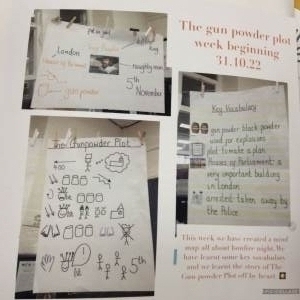 The gun powder plot
week beginning
31.10.22
London
gun powder
king
naughty men
5th
November
Key Vocabulary
gun powder black powder
used for explosions
plot to make a plan
Houses of Parliament: a
very important building
in London
arrested taken away by
the Police
The Gunpowder Plot
5th
This week we have created a mind
map all about bonfire night. We
have learnt some key vocabulary
and we learnt the story of The
Gun powder Plot off by heart